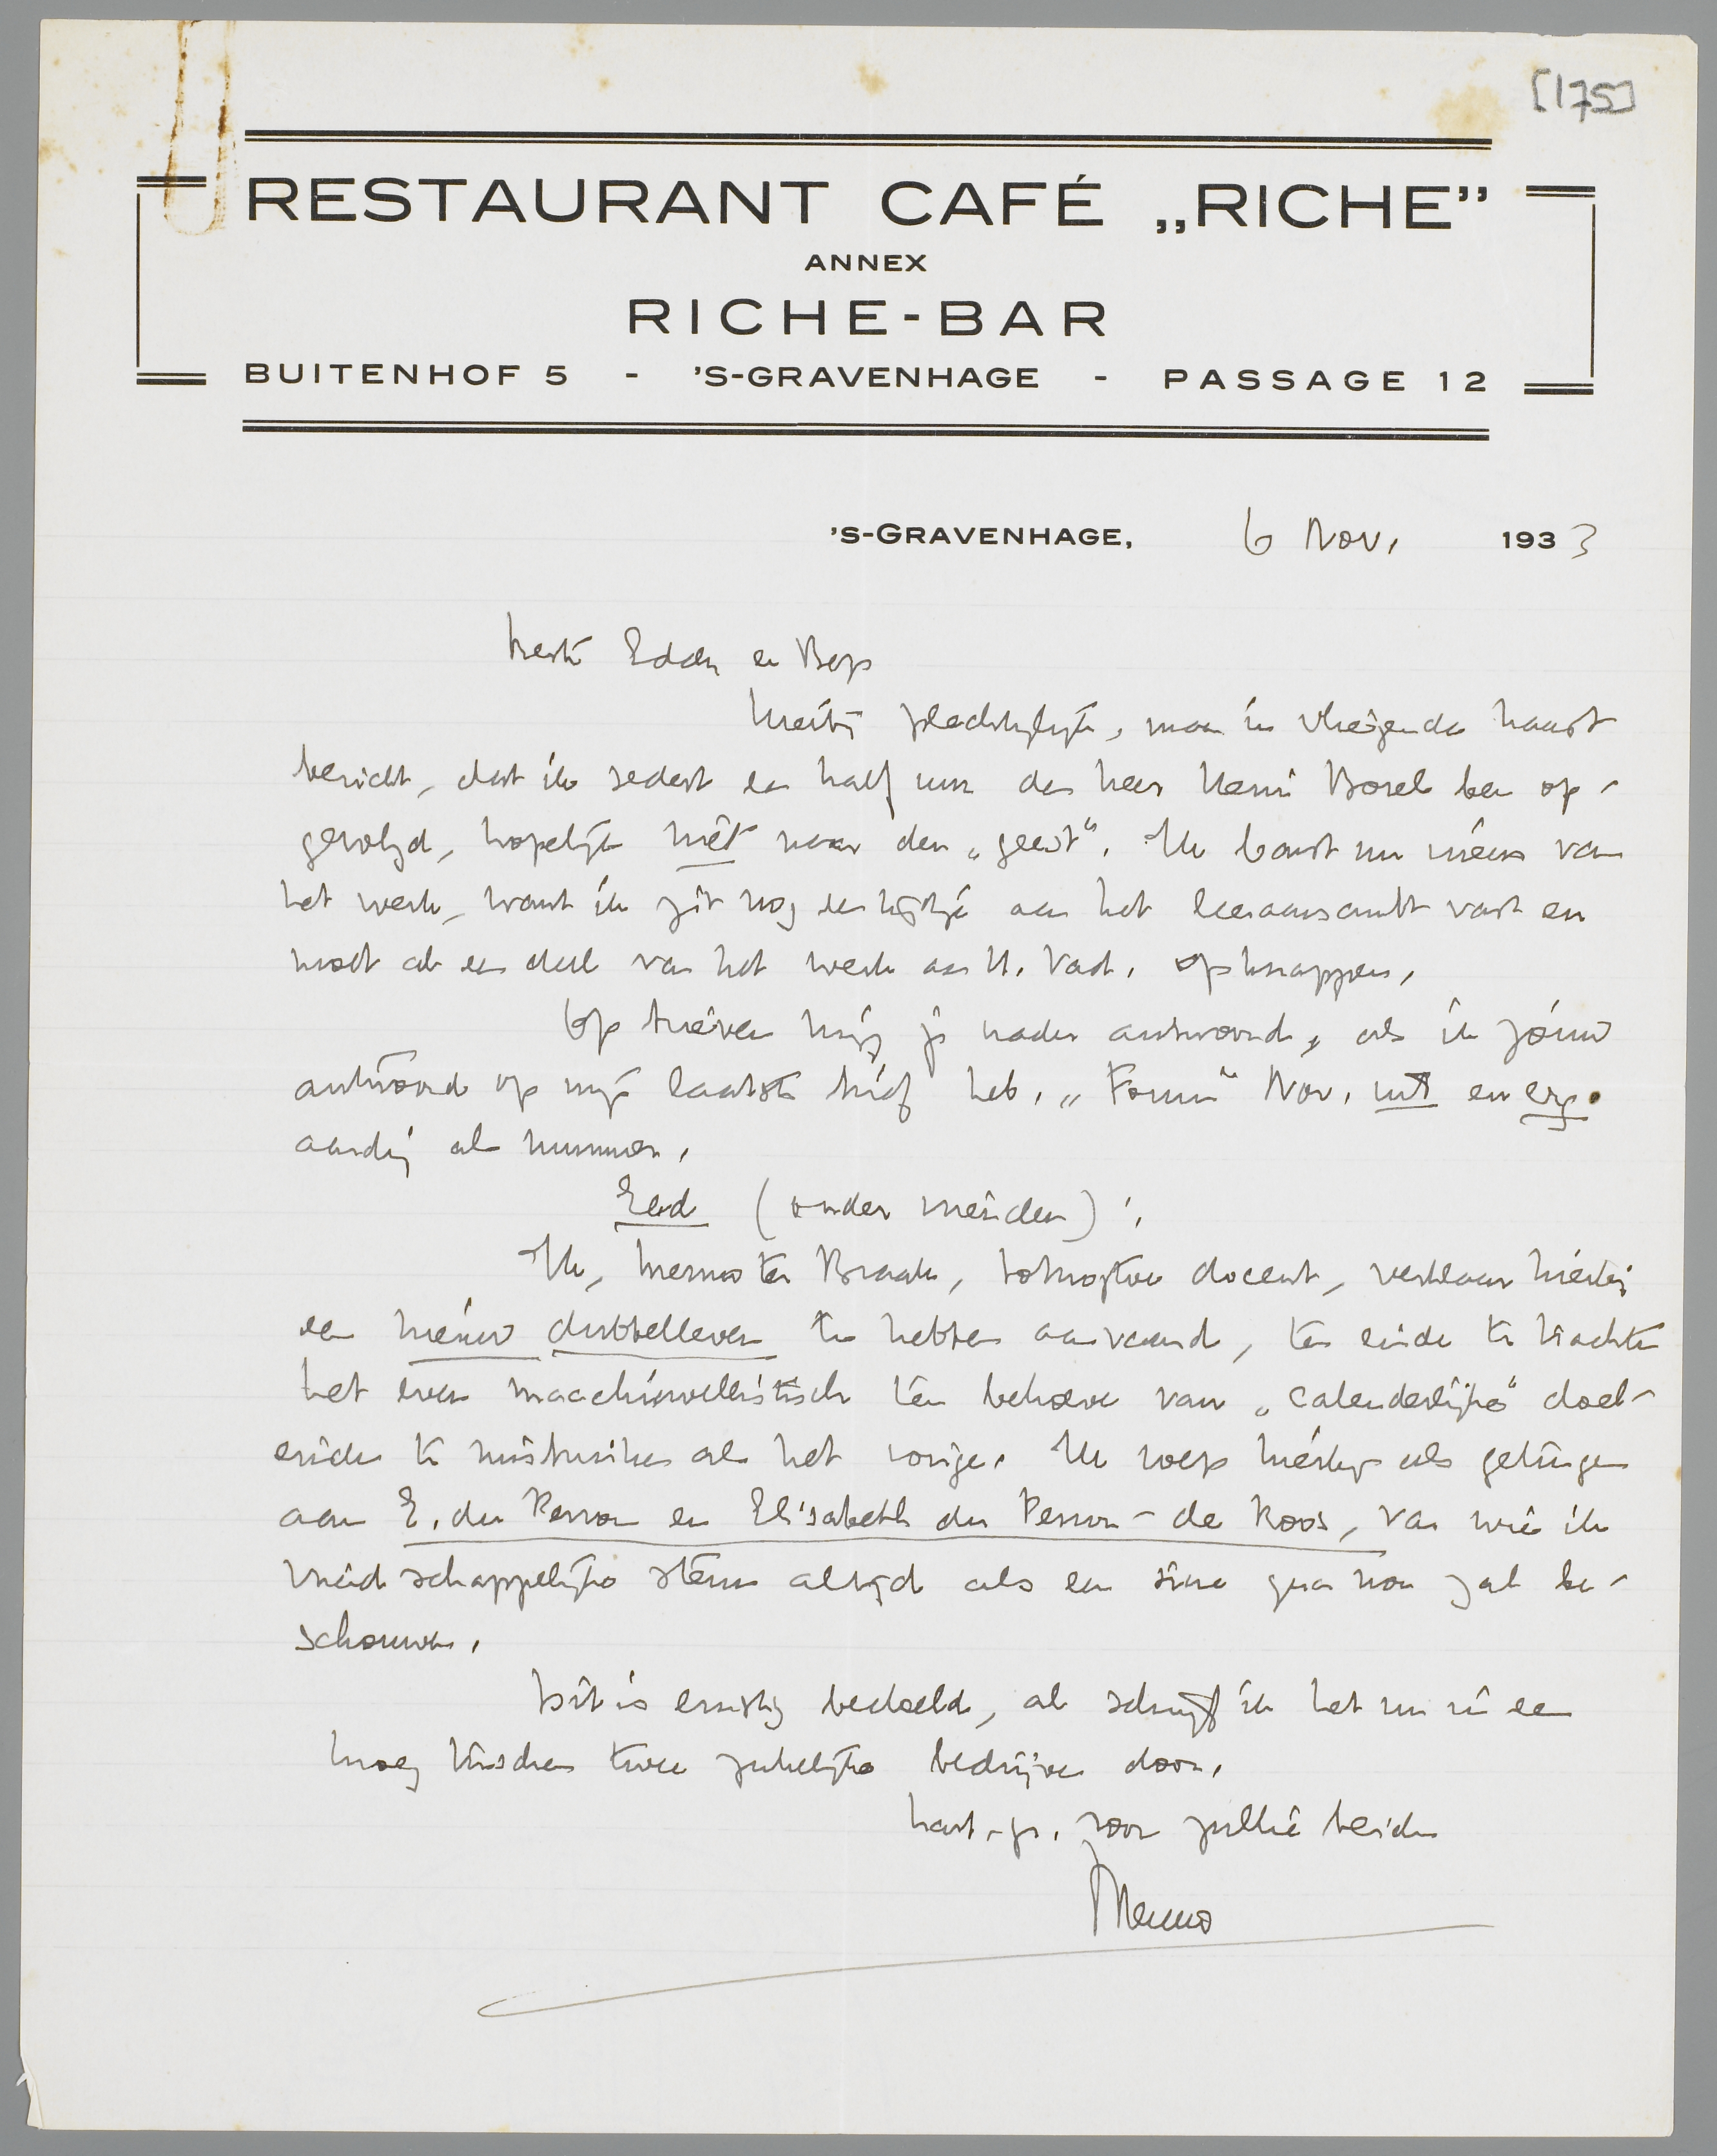 [175]
RESTAURANT CAFÉ „RICHE”
ANNEX
RICHE-BAR
BUITENHOF 5 - 'S-GRAVENHAGE - PASSAGE 12
'S-GRAVENHAGE, 6 Nov. 1933
Beste Eddy en Bep
Hierbij plechtiglijk, maar in vliegende haast
bericht, dat ik sedert een half uur den heer Henri Borel ben op-
gevolgd, hopelijk niet naar den „geest”. Ik barst nu ineens van
het werk, want ik zit nog een tijdje aan het leeraarsambt vast en
moet al een deel van het werk aan H. Vad. opknappen.
Op brieven krijg je nader antwoord, als ik jóuw
antwoord op mijn laatste brief heb. „Forum” Nov. uit en erg
aardig als nummer.
Eed (onder vrienden):
Ik, Menno ter Braak, docent, verklaar hierbij
een nieuw dubbelleven te hebben aanvaard, ten einde te trachten
het even macchiavellistisch ten behoeve van „calenderlijke” doel-
einden te misbruiken als het vorige. Ik roep hierbij als getuigen
aan E. du Perron en Elisabeth du Perron-de Roos, van wie ik
vriendschappelijke steun altijd als een sine qua non zal be-
schouwen.
Dit is ernstig bedoeld, al schrijf ik het nu in een
kroeg tusschen twee zakelijke bedrijven door.
hart. gr. voor jullie beiden
Menno